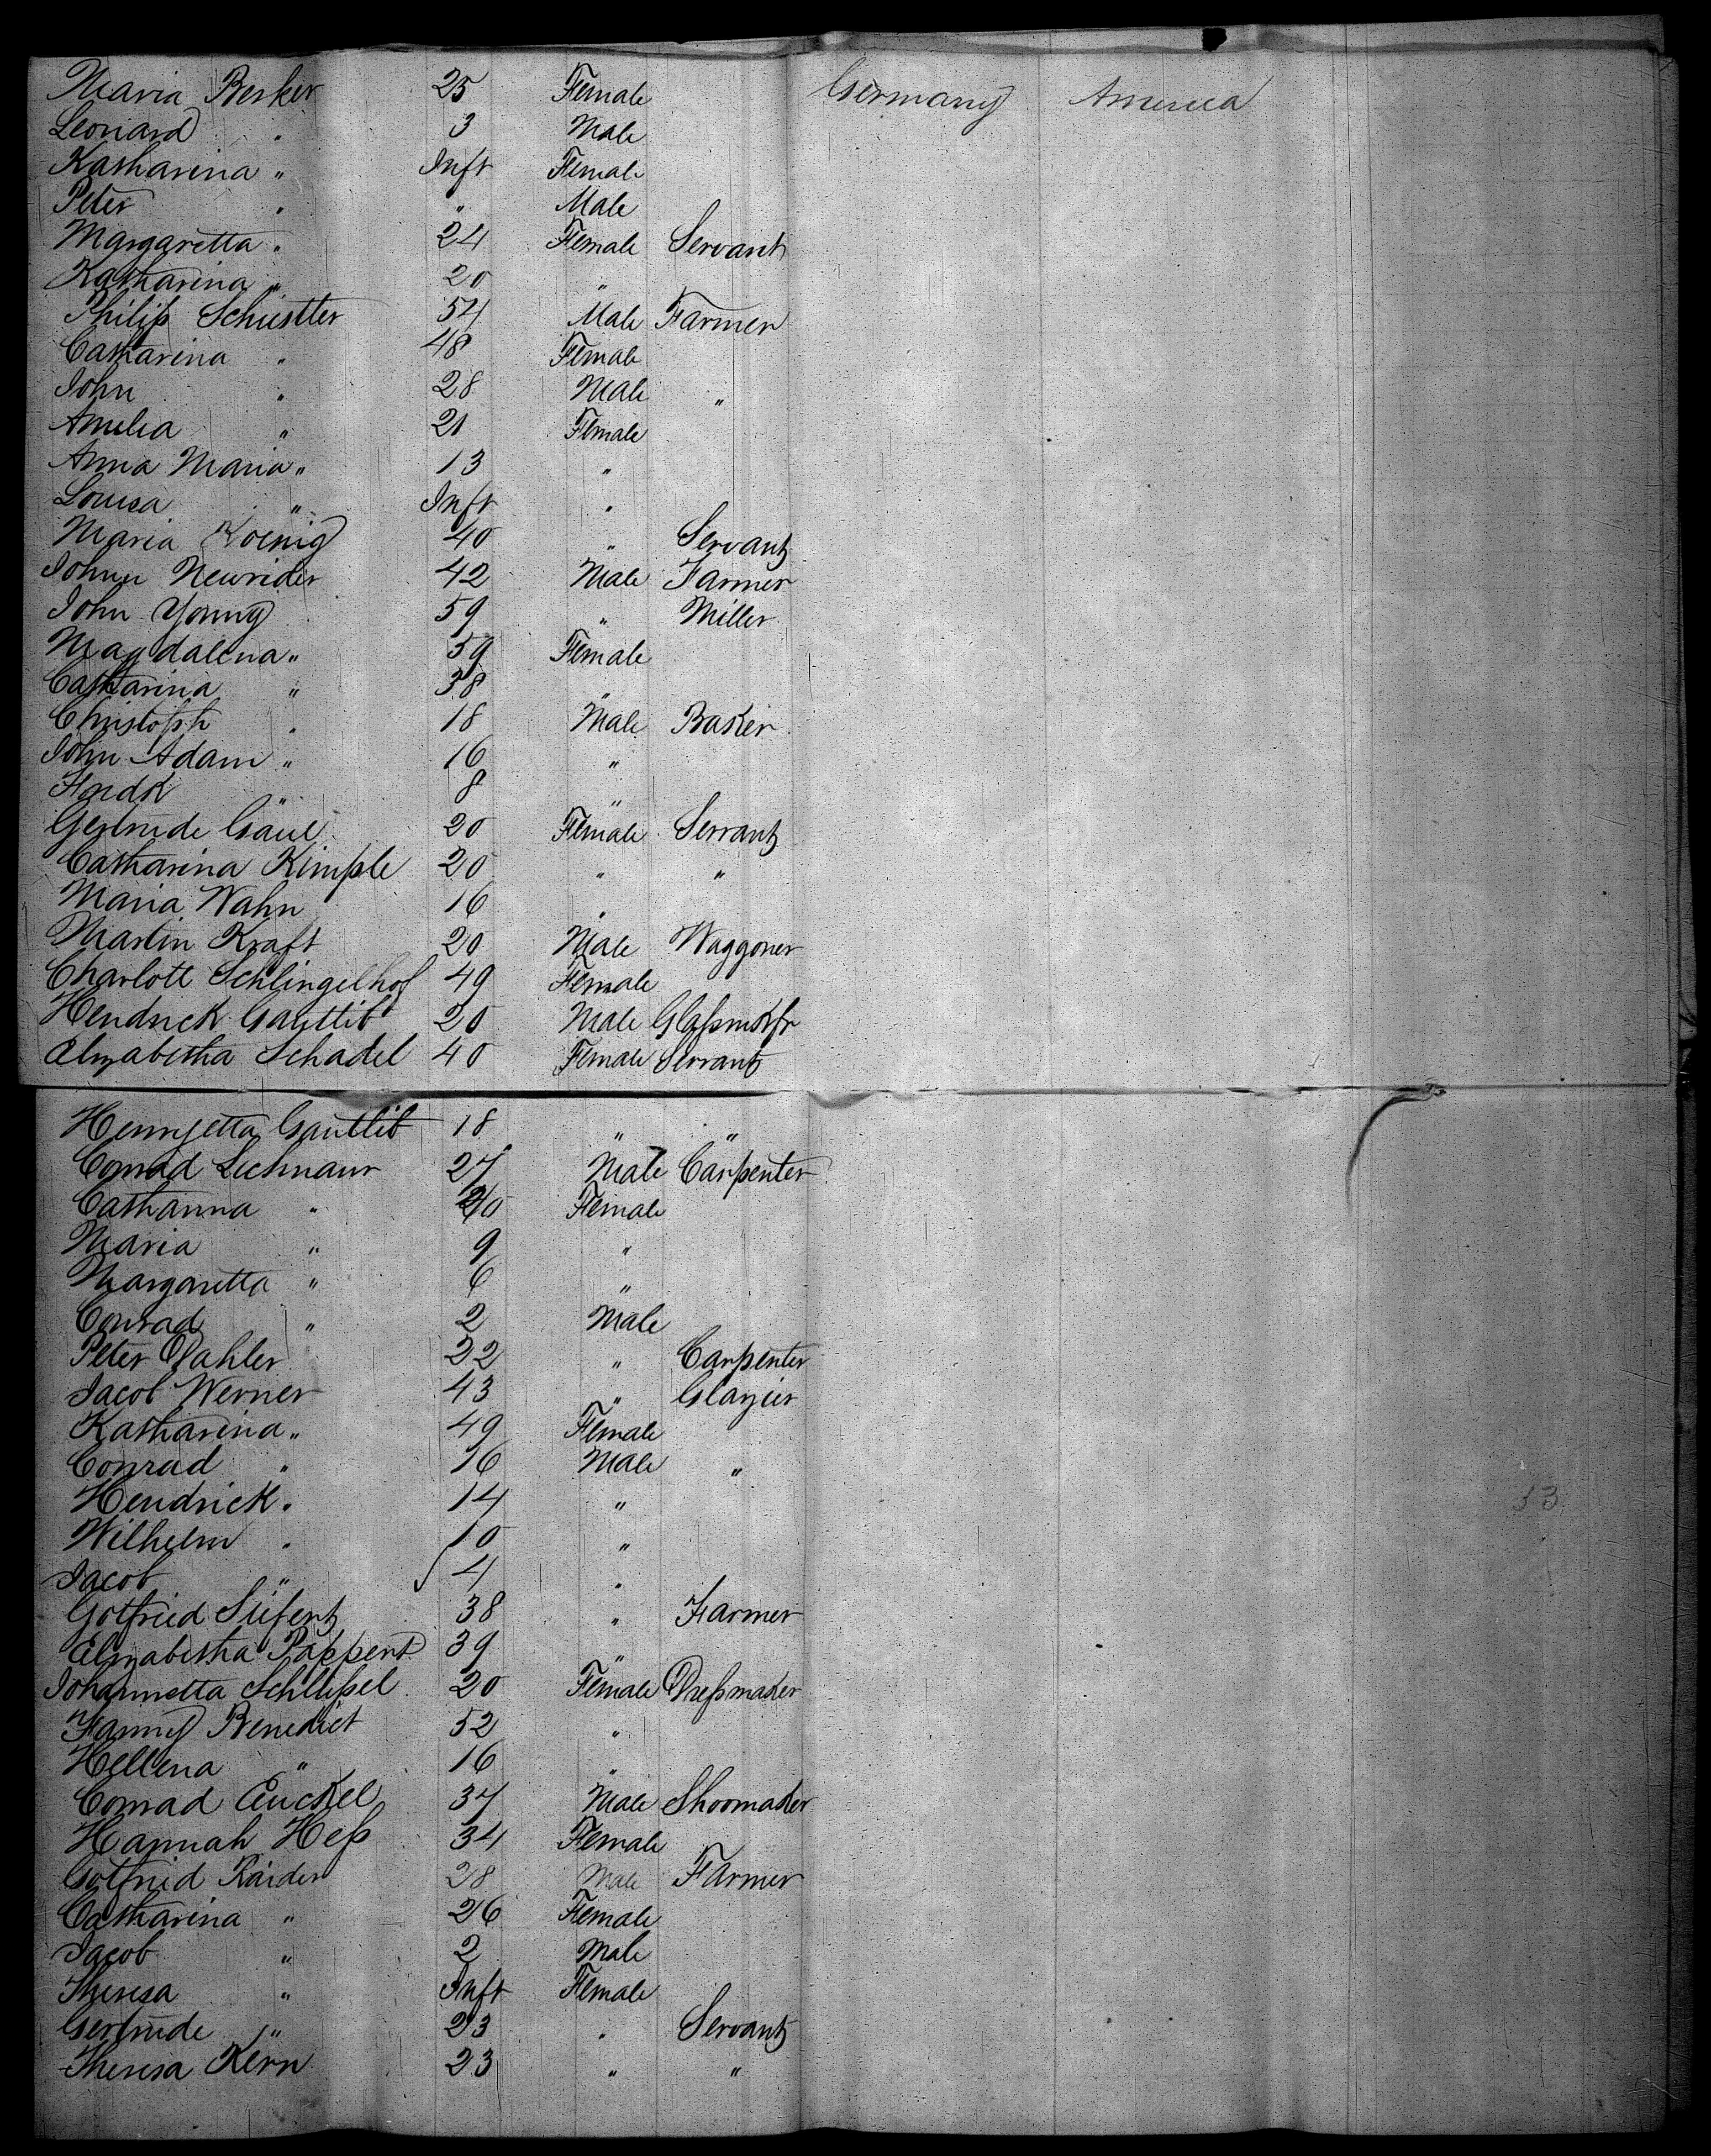 Maria Besker 25 Female Germany America
Leonard " 3 Male
Katharina " Inft Female
Peter " " Male
Margaretta " 24 Female Servant
Katharina " 20 "
Philip Schustler 54 Male Farmer
Catharina " 48 Female
John " 28 Male "
Amelia " 21 Female
Anna Maria " 13 "
Louisa " Inft "
Maria Koenig 40 " Servant
Johnn Newrider 42 Male Farmer
John Young 59 " Miller
Magdalena " 59 Female
Catharina " 38 "
Christoph " 18 Male Baker
John Adam " 16 "
Fredk " 8 "
Gertrude Gaul 20 Female Servant
Catharina Kimple 20 " "
Maria Wahn 16 "
Martin Kraft 20 Male Waggoner
Charlott Schlingelhof 49 Female
Hendrick Gauttib 20 Male
Elizabetha Schadel 40 Female Servant
Henryetta Gauttib 18 " "
Conrad Lichnaur 27 Male Carpenter
Catharina " Female
Maria " 9 "
Margaretta " 6 "
Conrad " 2 Male
Peter Dahler 22 " Carpenter
Jacob Werner 43 " Glazier
Katharina " 49 Female
Conrad " 16 Male "
Hendrick " 14 "
Wilhelm " 10 "
Jacob " 4 "
Gotfried Siifert 38 " Farmer
Elizabetha Pappert 39 "
Johannetta Schlußel 20 Female Dreßmaker
Fanny Benedict 52 "
Hellena " 16 "
Conrad Euckel 37 Male Shoomaker
Hannah Heß 34 Female
Gotfried Raider 28 Male Farmer
Catharina " 26 Female
Jacob " 2 Male
Theresa " Inft Female
Gertrude " 23 " Servant
Theresa Kern 23 " "